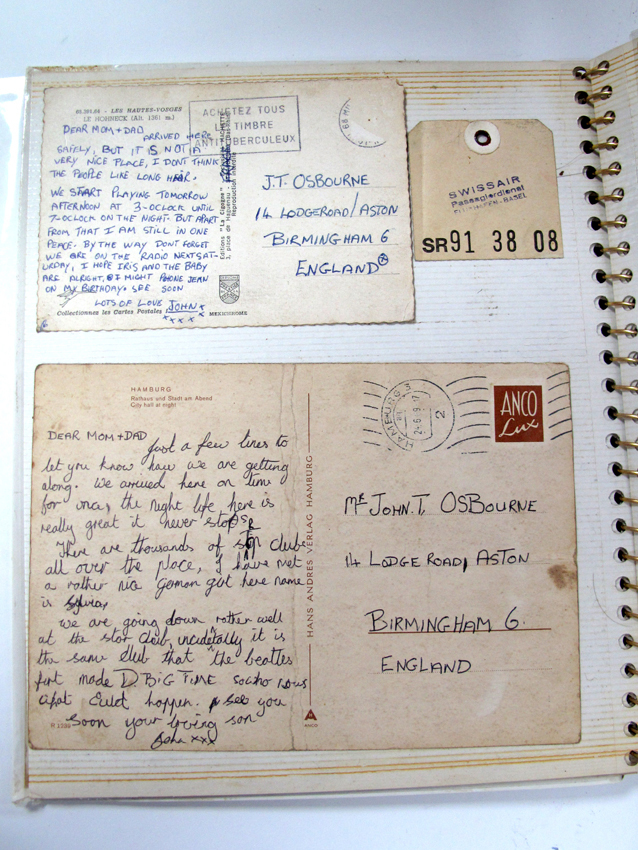 90.391.84 - LES HAUTES-VOSGES
LE HOHNECK (Alt. 1361 m.)
ACHETEZ TOUS
LE TIMBRE
ANTITUBERCULEUX
DEAR MOM + DAD
ARRIVED HERE
SAFELY, BUT IT IS NOT A
VERY NICE PLACE, I DONT THINK
THE PEOPLE LIKE LONG HAIR.
WE START PLAYING TOMORROW
AFTERNOON AT 3-OCLOCK UNTIL
7-OCLOCK ON THE NIGHT. BUT APART
FROM THAT I AM STILL IN ONE
PEACE. BY THE WAY DONT FORGET
WE ARE ON THE RADIO NEXT SAT-
URDAY, I HOPE IRIS AND THE BABY
ARE ALRIGHT, I MIGHT PHONE JEAN
ON MY BIRTHDAY. SEE SOON
LOTS OF LOVE JOHN x
x x x
Collectionnez les Cartes Postales
Editions "La Cigogne"
Reproduction interdite
J.T. OSBOURNE
14 LODGEROAD/ASTON
BIRMINGHAM 6
ENGLAND
SWISSAIR
Passagierdienst
BASEL
SR 91 38 08
HAMBURG
Rathaus und Stadt am Abend
City hall at night
DEAR MOM + DAD
Just a few lines to
let you know how we are getting
along. We arrived here on time
for once, the night life here is
really great it never stops
There are thousands of clubs
all over the place, I have met
a rather nice german girl here name
is Sylvia,
we are going down rather well
at the star club, incidetally it is
the same club that the beatles
first made D BIG TIME so who nows
what might happen. see you
Soon your loving son
John xxx
HANS ANDRES VERLAG HAMBURG
ANCO
HAMBURG 3
2
ANCO
Lux
MR JOHN.T. OSBOURNE
14 LODGE ROAD, ASTON
BIRMINGHAM 6.
ENGLAND